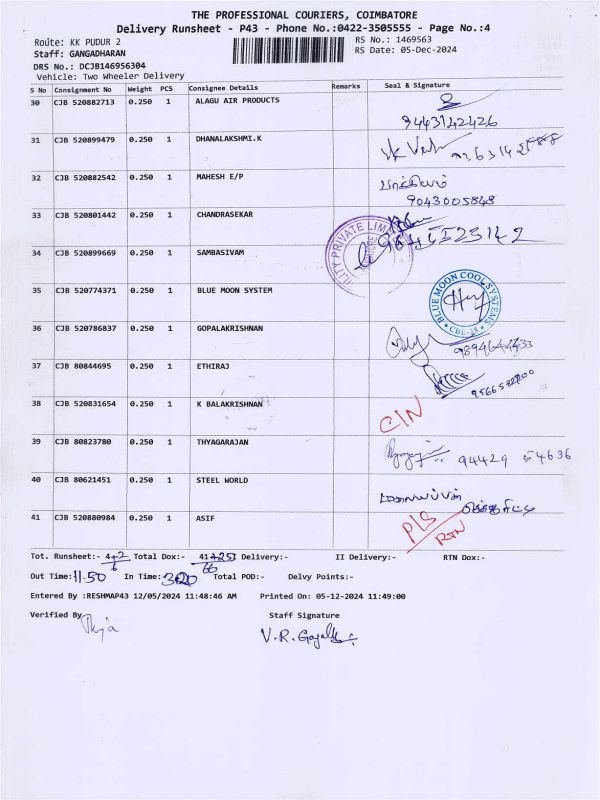 THE PROFESSIONAL COURIERS, COIMBATORE
Delivery Runsheet - P43 - Phone No.:0422-3505555 - Page No.:4
Route: KK PUDUR 2
RS No.: 1469563
Staff: GANGADHARAN
RS Date: 05-Dec-2024
DRS No.: DCJB146956304
Vehicle: Two Wheeler Delivery
S No Consignment No Weight PCS Consignee Details Remarks Seal & Signature
30 CJB 520882713 0.250 1 ALAGU AIR PRODUCTS
9443142426
31 CJB 520899479 0.250 1 DHANALAKSHMI.K
32 CJB 520882542 0.250 1 MAHESH E/P
9043005848
33 CJB 520801442 0.250 1 CHANDRASEKAR
ILITY PRIVATE LIM
34 CJB 520899669 0.250 1 SAMBASIVAM
35 CJB 520774371 0.250 1 BLUE MOON SYSTEM
BLUE MOON COOL SYSTEMS
36 CJB 520786837 0.250 1 GOPALAKRISHNAN
37 CJB 80844695 0.250 1 ETHIRAJ
38 CJB 520831654 0.250 1 K BALAKRISHNAN
CIN
39 CJB 80823780 0.250 1 THYAGARAJAN
94429 54636
40 CJB 80621451 0.250 1 STEEL WORLD
41 CJB 520880984 0.250 1 ASIF
RTN
Tot. Runsheet:- 4+2 Total Dox:- 41+25 Delivery:- II Delivery:- RTN Dox:-
6 66
Out Time: 11.50 In Time: 3.20 Total POD:- Delvy Points:-
Entered By :RESHMAP43 12/05/2024 11:48:46 AM Printed On: 05-12-2024 11:49:00
Verified By
Staff Signature